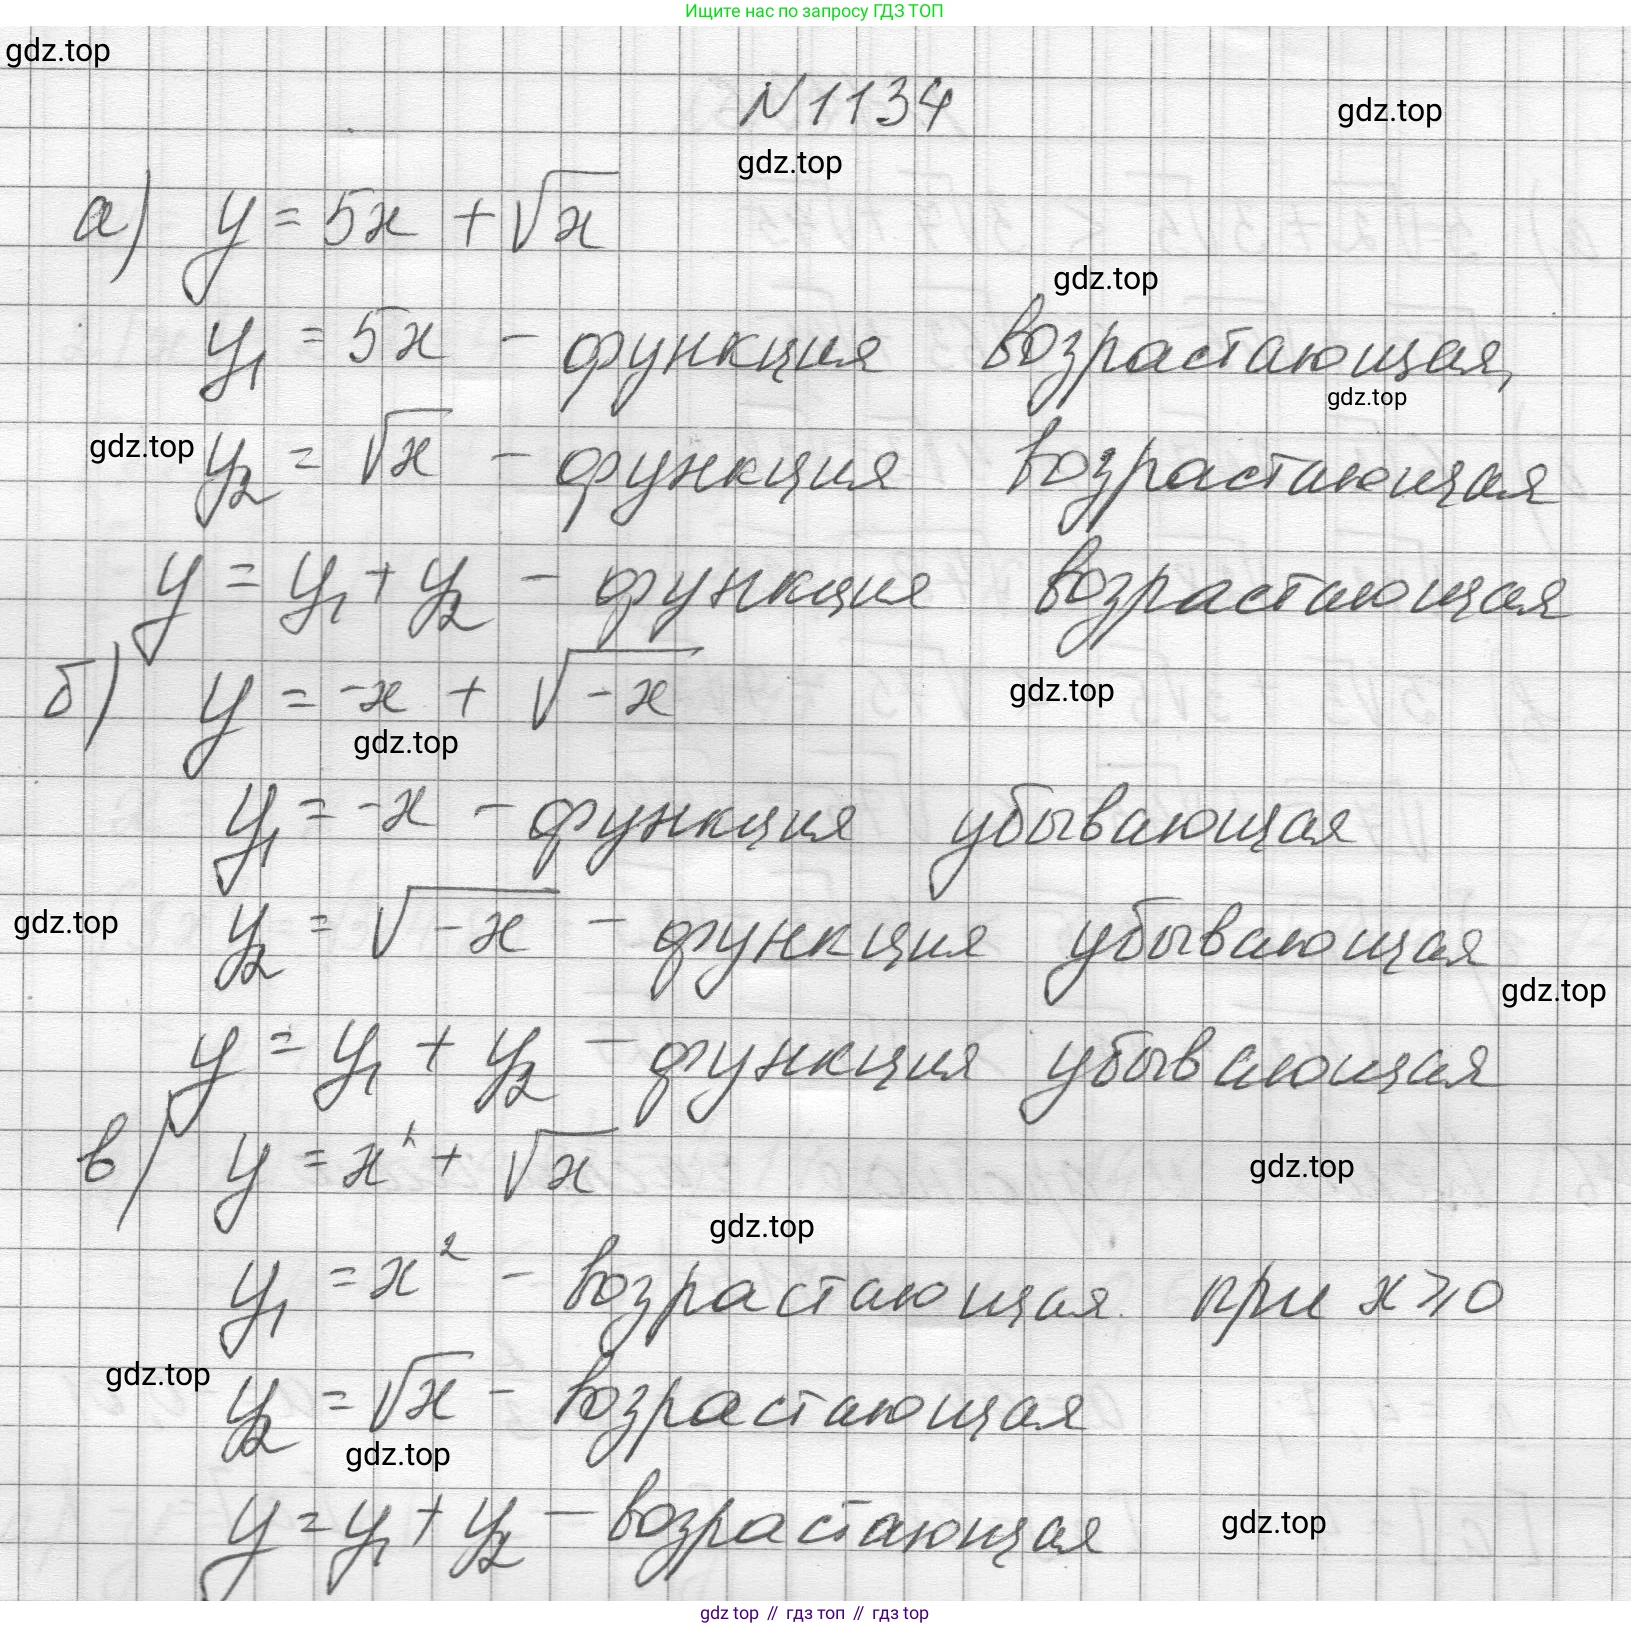 Ищите нас по запросу ГДЗ ТОП
gdz.top
N 1134
gdz.top
gdz.top
а) y = 5x + √x
gdz.top
y₁ = 5x – функция возрастающая,
gdz.top
gdz.top
y₂ = √x – функция возрастающая
y = y₁ + y₂ – функция возрастающая
б) y = -x + √-x
gdz.top
gdz.top
y₁ = -x – функция убывающая
gdz.top
y₂ = √-x – функция убывающая
gdz.top
y = y₁ + y₂ – функция убывающая
в) y = x² + √x
gdz.top
gdz.top
y₁ = x² – возрастающая при x ⩾ 0
gdz.top
y₂ = √x – возрастающая
gdz.top
y = y₁ + y₂ – возрастающая
gdz.top
gdz top // гдз топ // гдз top